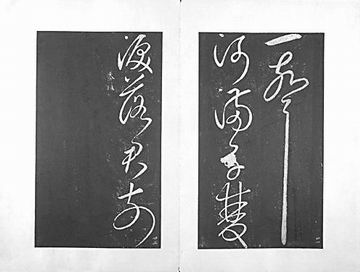 一聲
河滿子雙
淚落君前